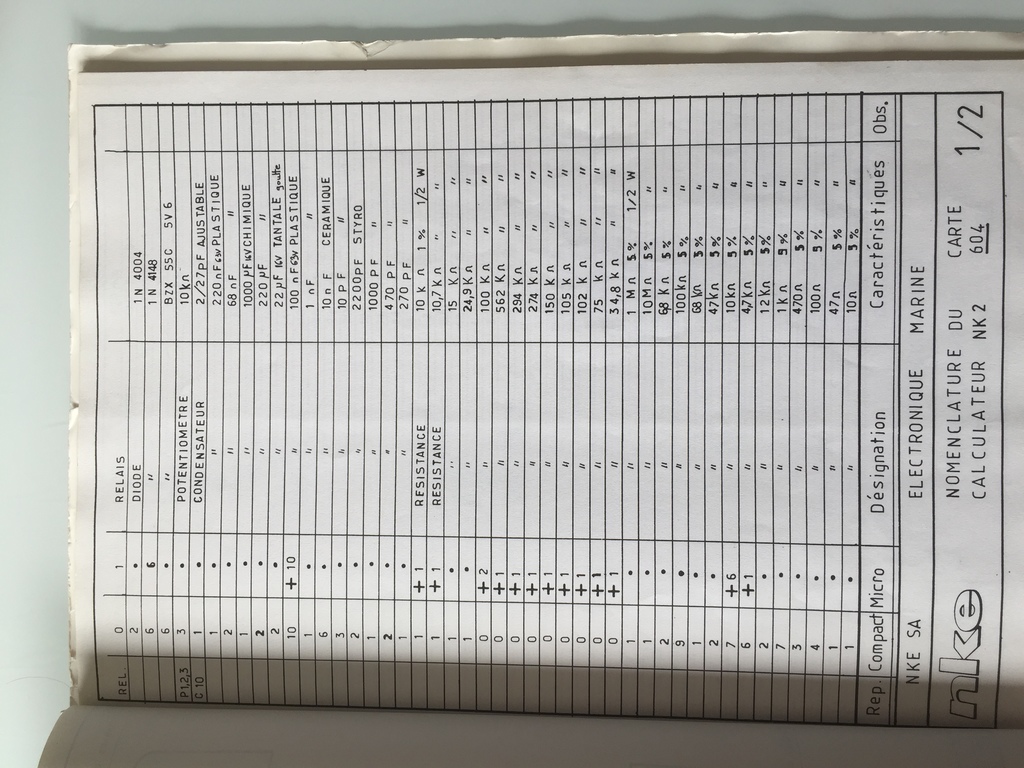 REL. 0 1 RELAIS
2 • DIODE 1N 4004
6 6 " 1N 4148
6 • " BZX 55C 5V6
P1,2,3 3 • POTENTIOMETRE 10kΩ
C10 1 • CONDENSATEUR 2/27pF AJUSTABLE
1 • " 220nF 63v PLASTIQUE
2 • " 68 nF "
1 • " 1000 µF 16V CHIMIQUE
2 • " 220 µF "
2 • " 22 µF 16V TANTALE goutte
10 + 10 " 100 nF 63v PLASTIQUE
1 • " 1 nF "
6 • " 10n F CERAMIQUE
3 • " 10 P F "
2 • " 2200pF STYRO
1 • " 1000 PF "
2 • " 470 PF "
1 • " 270 PF "
1 + 1 RESISTANCE 10 k Ω 1 % 1/2 W
1 + 1 RESISTANCE 10,7 K Ω " "
1 • " 15 K Ω " "
1 • " 24,9 K Ω " "
0 + 2 " 100 K Ω " "
0 + 1 " 562 K Ω " "
0 + 1 " 294 K Ω " "
0 + 1 " 274 K Ω " "
0 + 1 " 150 K Ω " "
0 + 1 " 105 K Ω " "
0 + 1 " 102 K Ω " "
0 + 1 " 75 K Ω " "
0 + 1 " 34,8 K Ω " "
1 • " 1 M Ω 5% 1/2 W
1 • " 10 M Ω 5% "
2 • " K Ω 5% "
9 • " 100 k Ω 5% "
1 • " 68 k Ω 5% "
2 • " 47 k Ω 5% "
7 + 6 " 10 k Ω 5% "
6 + 1 " 4,7 K Ω 5% "
2 • " 12 K Ω 5% "
7 • " 1 k Ω 5% "
3 • " 470 Ω 5% "
4 • " 100 Ω 5% "
1 • " 47 Ω 5% "
1 • " 10 Ω 5% "
Rep. Compact Micro Désignation Caractéristiques Obs.
NKE SA ELECTRONIQUE MARINE
nke NOMENCLATURE DU CARTE 1/2
CALCULATEUR NK2 604